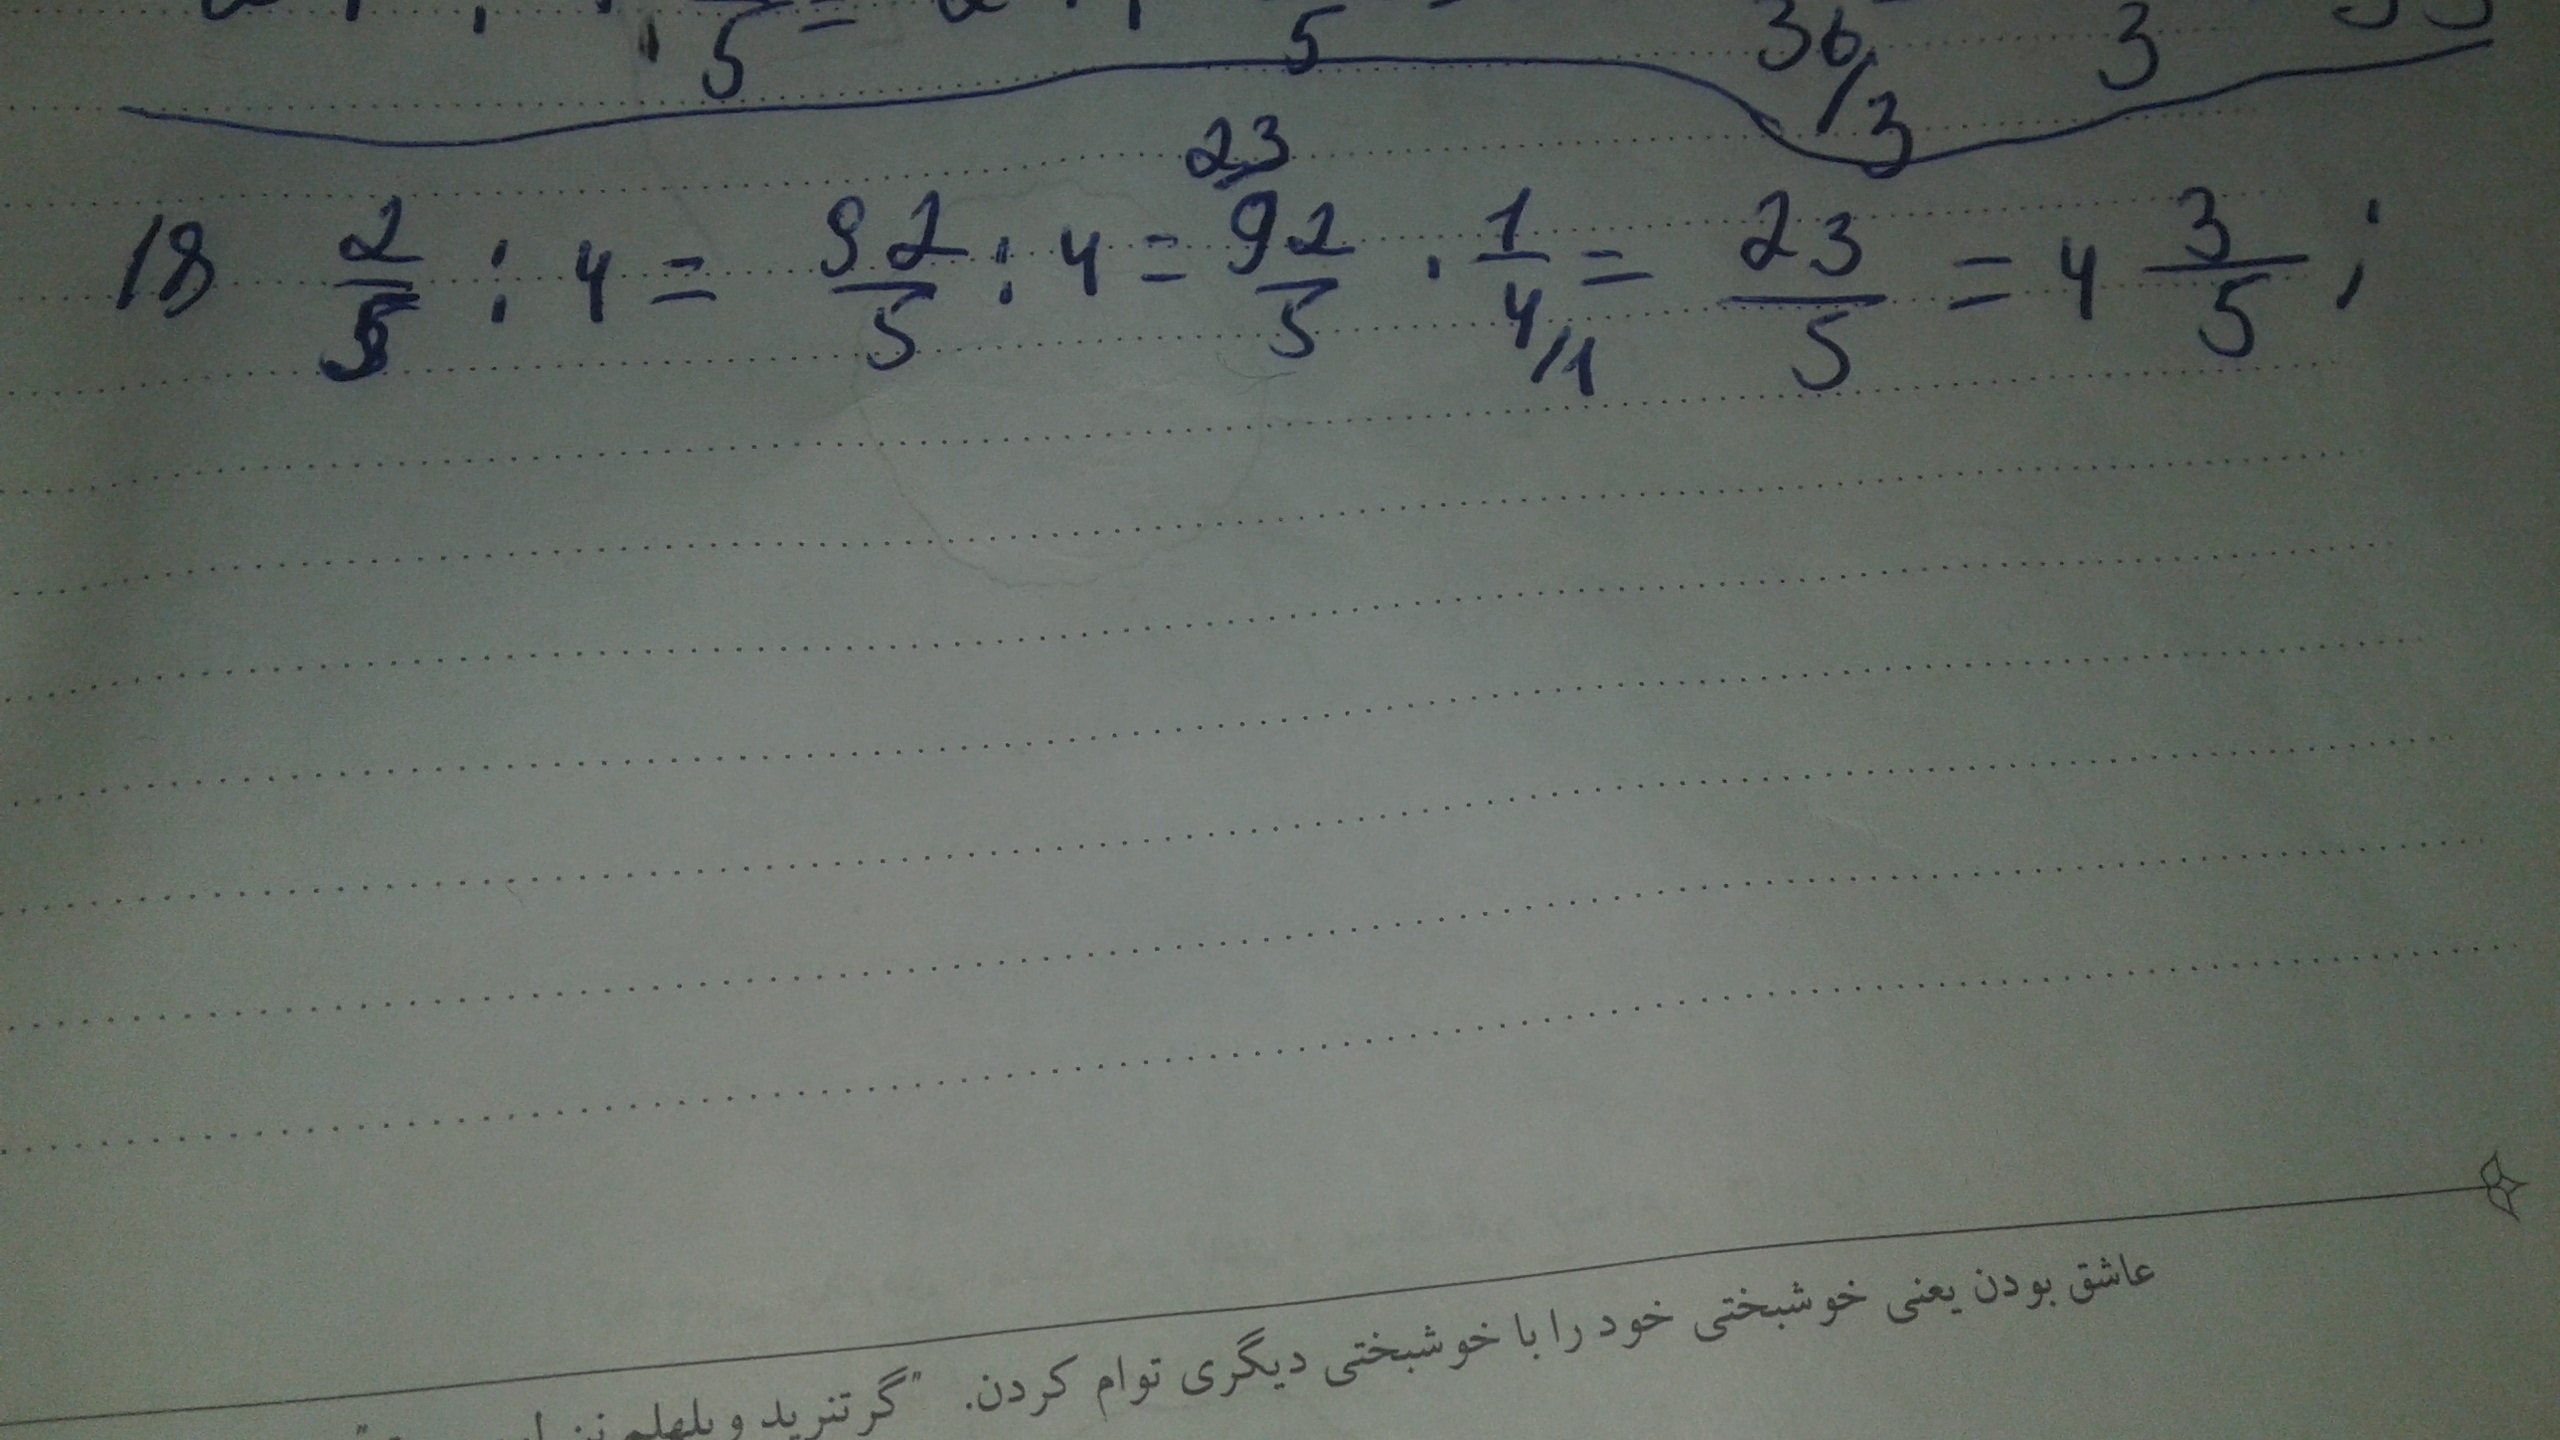 5 = 5 36/3 3
18 2/5 : 4 = 92/5 : 4 = 92/5 · 1/4 = 23/5 = 4 3/5 ;
23
/1
عاشق بودن یعنی خوشبختی خود را با خوشبختی دیگری توام کردن. "گر تنرید و یلهلم نن